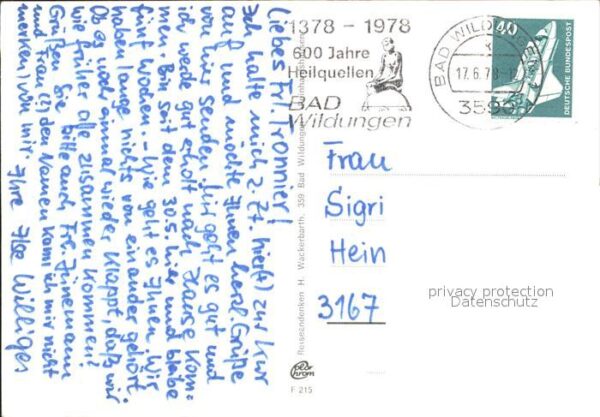 Liebes Frl. Trönnier!
Ich halte mich z. Zt. hier(s) zur Kur
auf und möchte Ihnen herzl. Grüße
von hier senden. Mir geht es gut und
ich werde gut erholt nach Hause kom-
men. Bin seit dem 30.5. hier und bleibe
fünf Wochen. - Wie geht es Ihnen. Wir
haben lange nichts von einander gehört.
Ob es noch einmal wieder klappt, daß wir
wie früher alle zusammen kommen?
Grüßen Sie bitte auch Frl. Jünemann
und Frau (?) den Namen kann ich mir nicht
merken) von mir. Ihre Ilse Williges
Reiseandenken H. Wackerbarth, 359 Bad Wildungen
colorchrom
F 215
1378 - 1978
600 Jahre
Heilquellen
BAD
Wildungen
BAD WILDUNGEN 1
17.6.78
3590
40
DEUTSCHE BUNDESPOST
Frau
Sigri
Hein
3167
privacy protection
Datenschutz